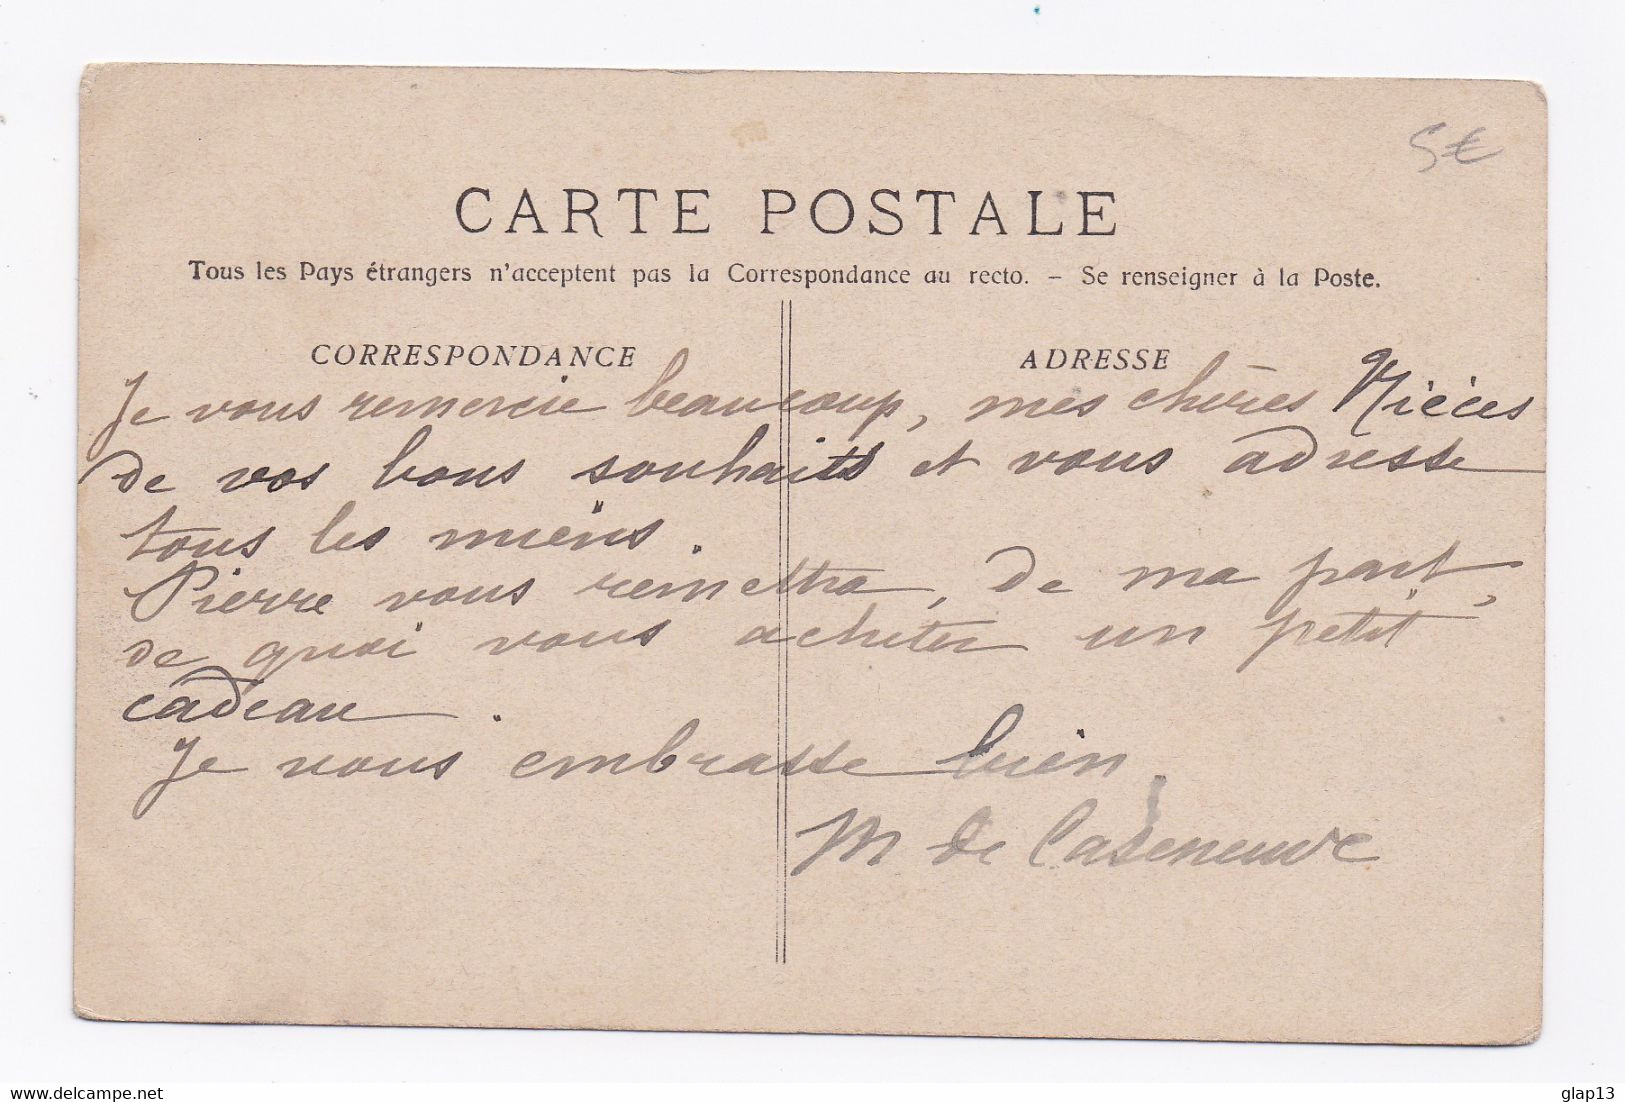 5€
CARTE POSTALE
Tous les Pays étrangers n'acceptent pas la Correspondance au recto. - Se renseigner à la Poste.
CORRESPONDANCE
ADRESSE
Je vous remercie beaucoup, mes chères Nièces
de vos bons souhaits et vous adresse
tous les miens.
Pierre vous remettra, de ma part,
de quoi vous acheter un petit
cadeau.
Je vous embrasse bien,
M de Caseneuve
www.delcampe.net
glap13